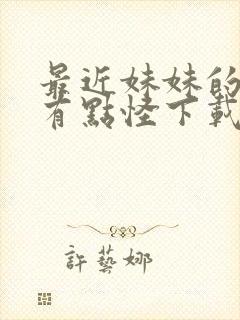 最近妹妹的
有點怪下載
許藝娜